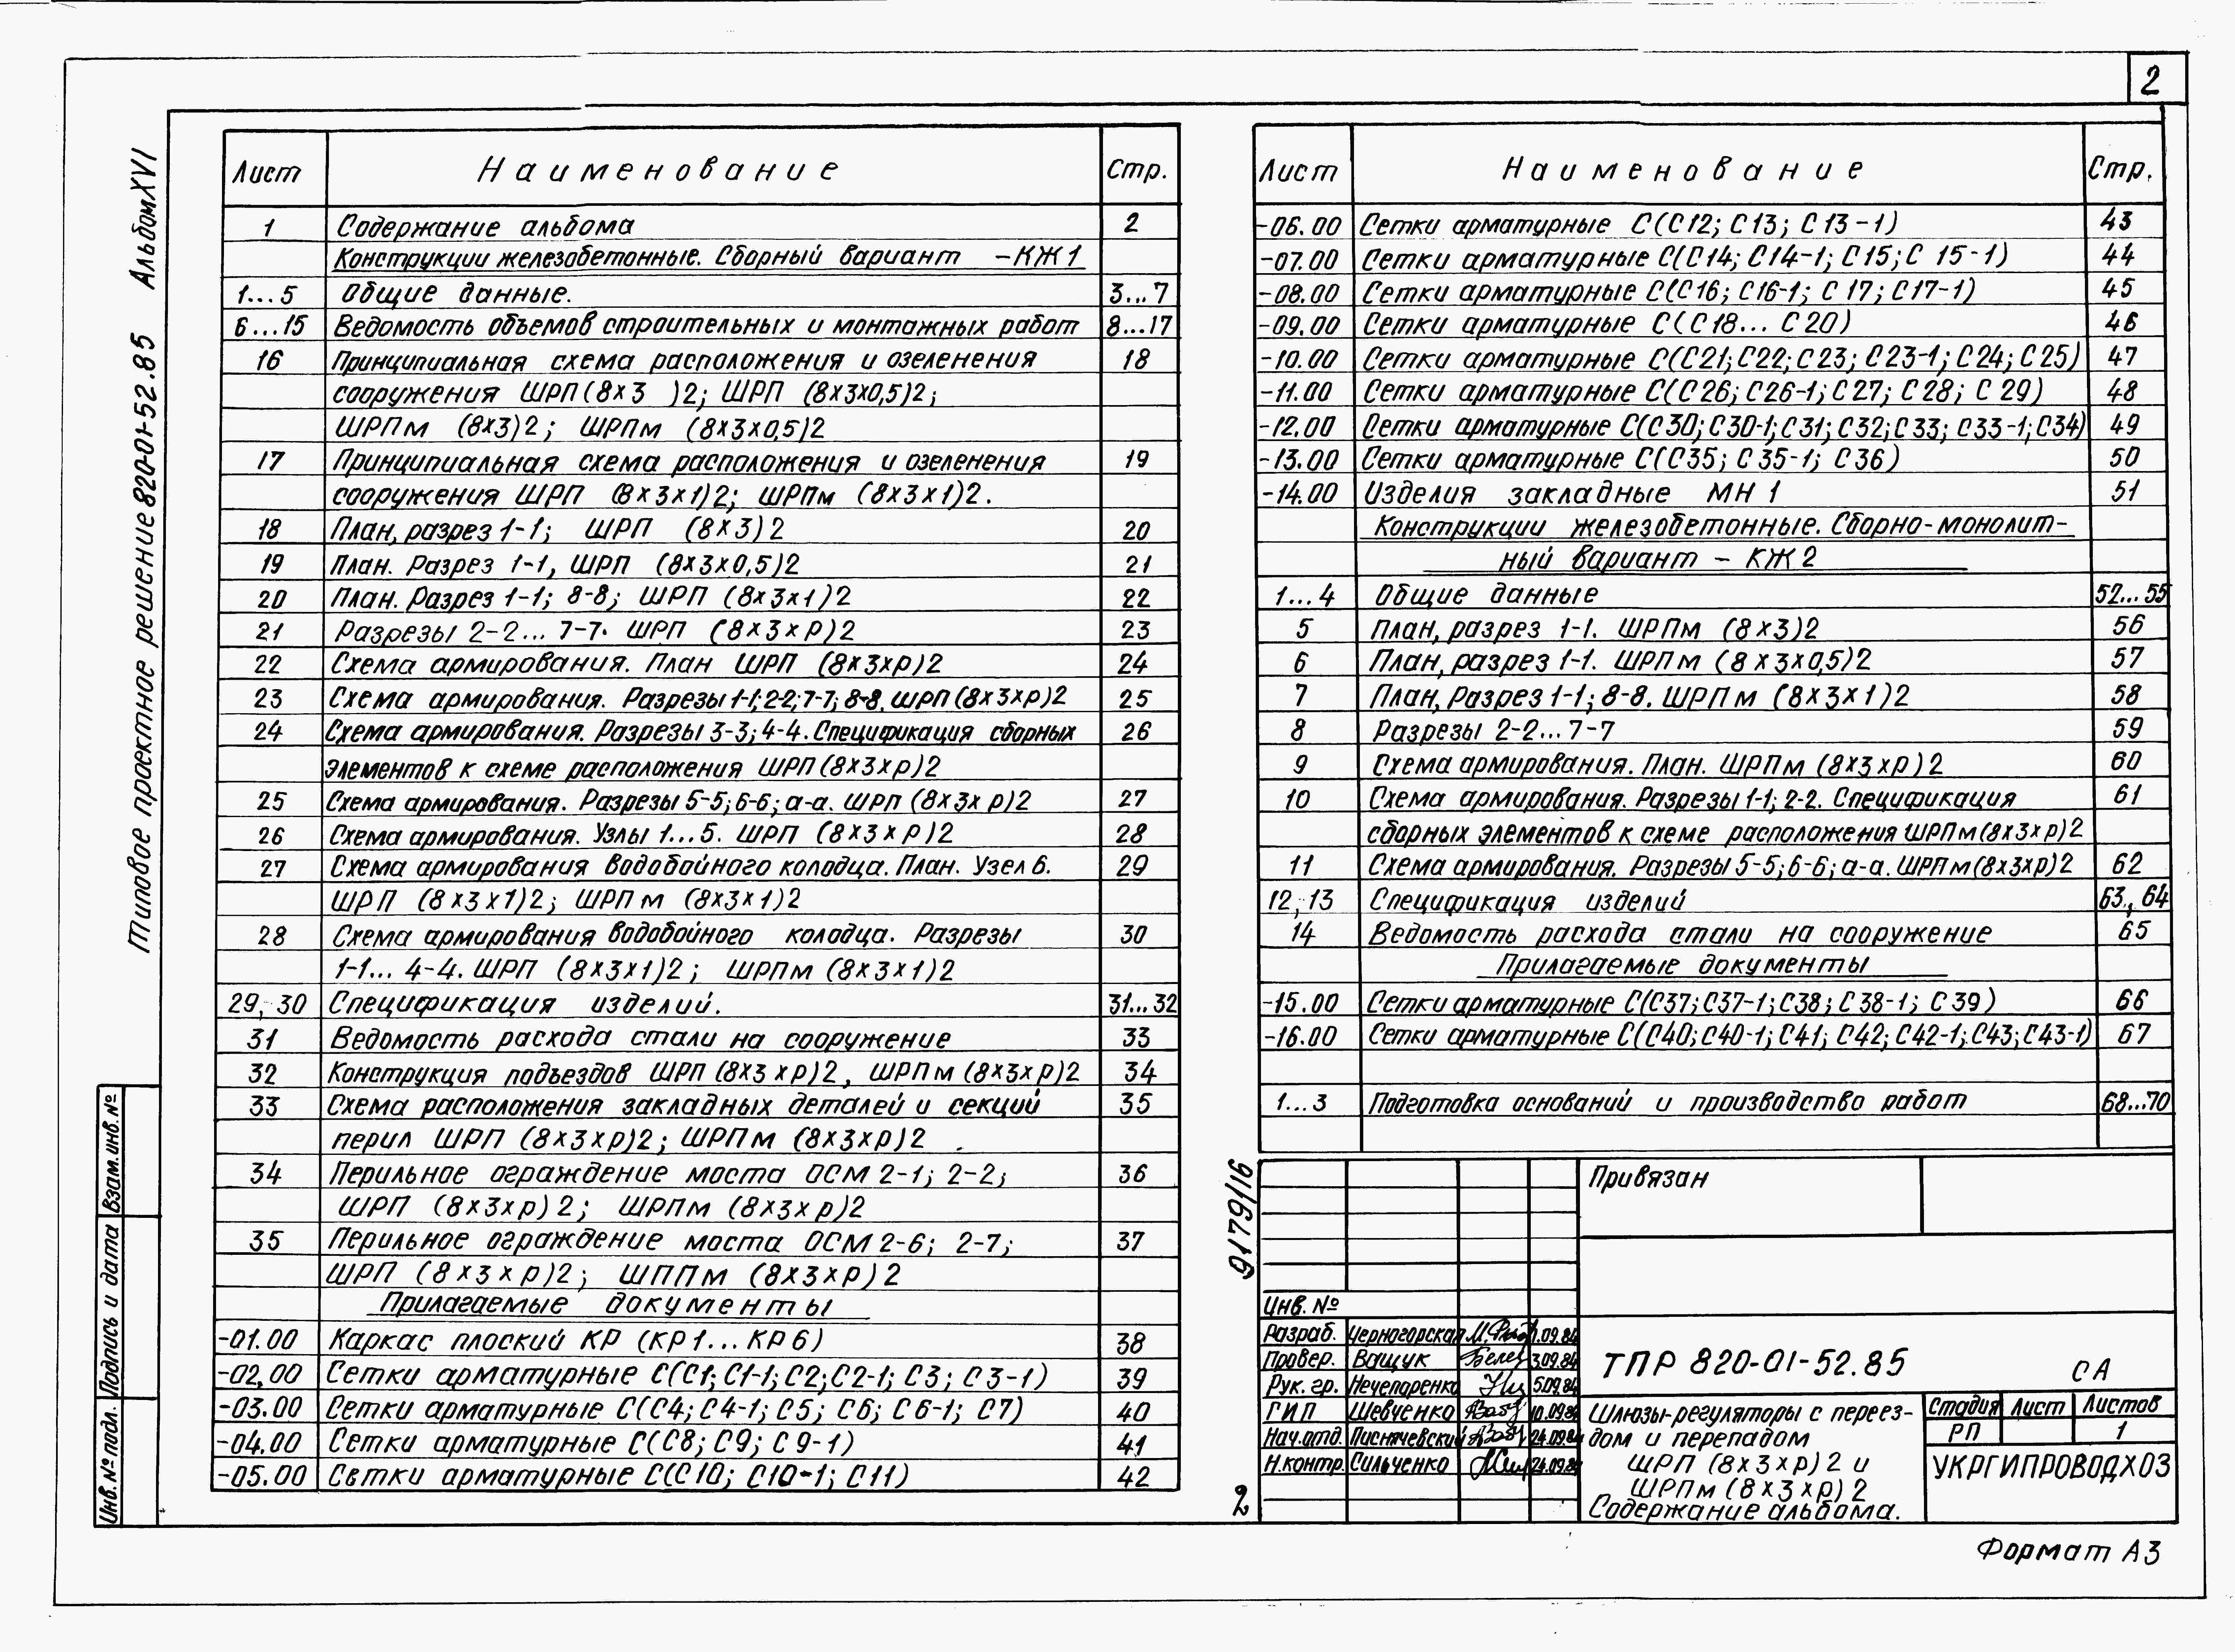 2
Типовое проектное решение 820-01-52.85 Альбом XVI
Лист Наименование Стр.
1 Содержание альбома 2
Конструкции железобетонные. Сборный вариант -КЖ1
1...5 Общие данные. 3...7
6...15 Ведомость объемов строительных и монтажных работ 8...17
16 Принципиальная схема расположения и озеленения 18
сооружения ШРП(8х3 )2; ШРП (8х3х0,5)2;
ШРПм (8х3)2; ШРПм (8х3х0,5)2
17 Принципиальная схема расположения и озеленения 19
сооружения ШРП (8х3х1)2; ШРПм (8х3х1)2.
18 План, разрез 1-1; ШРП (8х3)2 20
19 План. Разрез 1-1, ШРП (8х3х0,5)2 21
20 План. Разрез 1-1; 8-8; ШРП (8х3х1)2 22
21 Разрезы 2-2... 7-7. ШРП (8х3хр)2 23
22 Схема армирования. План ШРП (8х3хр)2 24
23 Схема армирования. Разрезы 1-1;2-2;7-7; 8-8. ШРП (8х3хр)2 25
24 Схема армирования. Разрезы 3-3; 4-4. Спецификация сборных 26
элементов к схеме расположения ШРП (8х3хр)2
25 Схема армирования. Разрезы 5-5; 6-6; а-а. ШРП (8х3х р)2 27
26 Схема армирования. Узлы 1...5. ШРП (8х3х р)2 28
27 Схема армирования водобойного колодца. План. Узел 6. 29
ШРП (8х3х1)2; ШРПм (8х3х1)2
28 Схема армирования водобойного колодца. Разрезы 30
1-1... 4-4. ШРП (8х3х1)2; ШРПм (8х3х1)2
29, 30 Спецификация изделий. 31...32
31 Ведомость расхода стали на сооружение 33
32 Конструкция подъездов ШРП (8х3хр)2, ШРПм (8х3хр)2 34
33 Схема расположения закладных деталей и секций 35
перил ШРП (8х3хр)2; ШРПм (8х3хр)2
34 Перильное ограждение моста ОСМ 2-1; 2-2; 36
ШРП (8х3хр)2; ШРПм (8х3хр)2
35 Перильное ограждение моста ОСМ 2-6; 2-7; 37
ШРП (8х3хр)2; ШППм (8х3хр)2
Прилагаемые документы
-01.00 Каркас плоский КР (КР1...КР6) 38
-02,00 Сетки арматурные С(С1; С1-1; С2; С2-1; С3; С3-1) 39
-03.00 Сетки арматурные С(С4; С4-1; С5; С6; С6-1; С7) 40
-04.00 Сетки арматурные С(С8; С9; С9-1) 41
-05.00 Свтки арматурные С(С10; С10-1; С11) 42
Лист Наименование Стр.
-06.00 Сетки арматурные С(С12; С13; С13-1) 43
-07.00 Сетки арматурные С(С14; С14-1; С15; С 15-1) 44
-08.00 Сетки арматурные С(С16; С16-1; С 17; С17-1) 45
-09.00 Сетки арматурные С(С18... С20) 46
-10.00 Сетки арматурные С(С21; С22; С23; С23-1; С24; С25) 47
-11.00 Сетки арматурные С(С26; С26-1; С27; С28; С29) 48
-12.00 Сетки арматурные С(С30; С30-1; С31; С32; С33; С33-1; С34) 49
-13.00 Сетки арматурные С(С35; С35-1; С36) 50
-14.00 Изделия закладные МН1 51
Конструкции железобетонные. Сборно-монолит-
ный вариант - КЖ2
1...4 Общие данные 52...55
5 План, разрез 1-1. ШРПм (8х3)2 56
6 План, разрез 1-1. ШРПм (8х3х0,5)2 57
7 План, Разрез 1-1; 8-8. ШРПм (8х3х1)2 58
8 Разрезы 2-2...7-7 59
9 Схема армирования. План. ШРПм (8х3хр)2 60
10 Схема армирования. Разрезы 1-1; 2-2. Спецификация 61
сборных элементов к схеме расположения ШРПм (8х3хр)2
11 Схема армирования. Разрезы 5-5; 6-6; а-а. ШРПм (8х3хр)2 62
12, 13 Спецификация изделий 63, 64
14 Ведомость расхода стали на сооружение 65
Прилагаемые документы
-15.00 Сетки арматурные С(С37; С37-1; С38; С38-1; С39) 66
-16.00 Сетки арматурные С(С40; С40-1; С41; С42; С42-1; С43; С43-1) 67
1...3 Подготовка оснований и производство работ 68...70
9179/16
2
Привязан
Инв. №
Разраб. Черногорская
Провер. Ващук 3.09.84
Рук. гр. Нечепоренко 5.09.84
ГИП Шевченко 10.09.84
Нач.отд. Писнячевский 24.09.84
Н.контр. Сильченко 24.09.84
ТПР 820-01-52.85 СА
Шлюзы-регуляторы с переез-
дом и перепадом
ШРП (8х3хр)2 и
ШРПм (8х3хр)2
Содержание альбома.
Стадия Лист Листов
РП 1
УКРГИПРОВОДХОЗ
Формат А3
Взам. инв. №
Подпись и дата
Инв. № подл.